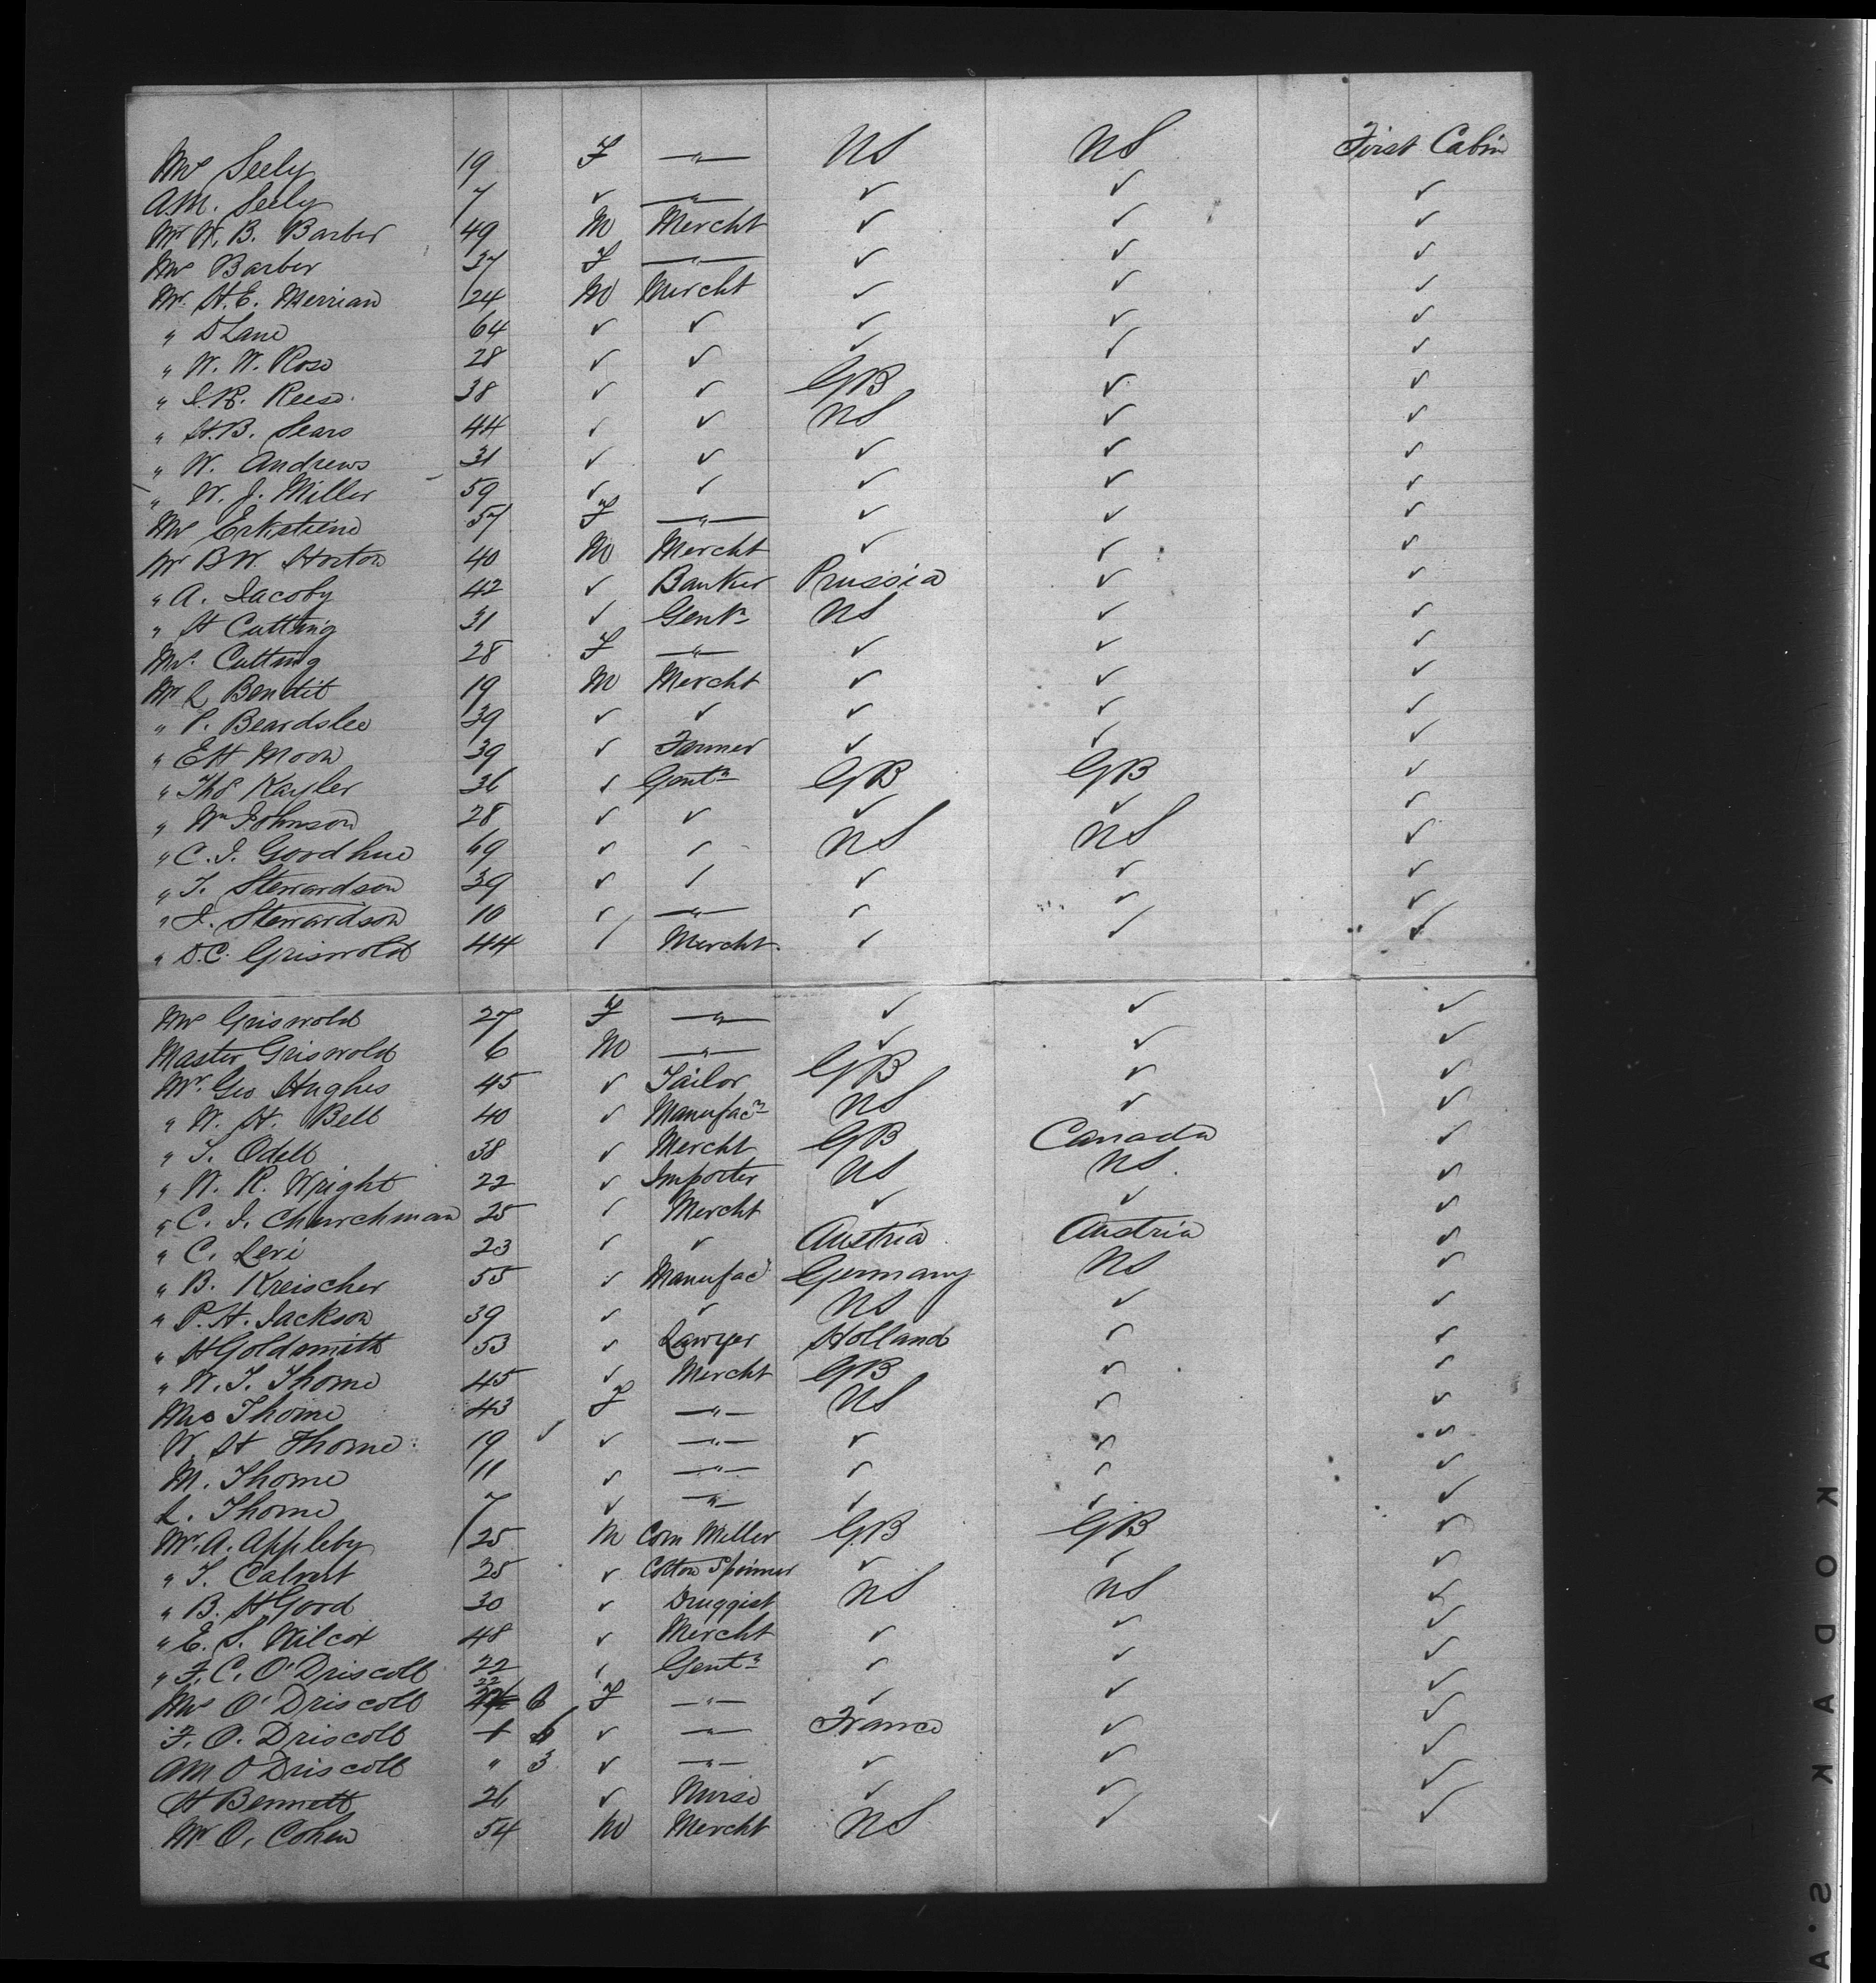 Mrs Seely 19 F —"— US US First Cabin
A.M. Seely 7 ✓ —"— ✓ ✓ ✓
Mr W. B. Barber 49 M Mercht ✓ ✓ ✓
Mrs Barber 37 F —"— ✓ ✓ ✓
Mr. H. E. Merriam 24 M Mercht ✓ ✓ ✓
" D Lane 64 ✓ ✓ ✓ ✓ ✓
" W. W. Rose 28 ✓ ✓ ✓ ✓ ✓
" I. R. Reese. 38 ✓ ✓ GB ✓ ✓
" H. B. Sears 44 ✓ ✓ US ✓ ✓
" W. Andrews 31 ✓ ✓ ✓ ✓ ✓
" W. J. Miller 59 ✓ ✓ ✓ ✓ ✓
Mrs Erksteine 57 F —"— ✓ ✓ ✓
Mr B W. Horton 40 M Mercht ✓ ✓ ✓
" A. Jacoby 42 ✓ Banker Prussia ✓ ✓
" H Cutting 31 ✓ Gentn US ✓ ✓
Mrs. Cutting 28 F —"— ✓ ✓ ✓
Mr L Bendit 19 M Mercht ✓ ✓ ✓
" P. Beardslee 39 ✓ ✓ ✓ ✓ ✓
" E H Moon 39 ✓ Farmer ✓ ✓ ✓
" Thos Kayler 36 ✓ Gentn GB GB ✓
" Wm Johnson 28 ✓ ✓ ✓ ✓ ✓
" C. J. Goodhue 69 ✓ ✓ US US ✓
" T. Stewardson 39 ✓ ✓ ✓ ✓ ✓
" J. Stewardson 10 ✓ —"— ✓ ✓ ✓
" D. C. Griswold 44 ✓ Mercht. ✓ ✓ ✓
Mrs Griswold 27 F —"— ✓ ✓ ✓
Master Griswold 6 M —"— ✓ ✓ ✓
Mr. Geo Hughes 45 ✓ Tailor GB ✓ ✓
" W. H. Bell 40 ✓ Manufacr US ✓ ✓
" T. Odell 38 ✓ Mercht GB Canada ✓
" W. R. Wright 22 ✓ Importer US US. ✓
" C. J. Churchman 25 ✓ Mercht ✓ ✓ ✓
" C. Levi 23 ✓ ✓ Austria Austria ✓
" B. Kreischer 55 ✓ Manufacr Germany US ✓
" P. H. Jackson 39 ✓ ✓ US ✓ ✓
" H Goldsmith 53 ✓ Lawyer Holland ✓ ✓
" W. T. Thorne 45 ✓ Mercht GB ✓ ✓
Mrs Thorne 43 F —"— US ✓ ✓
W. H Thorne 19 ✓ ✓ —"— ✓ ✓ ✓
M. Thorne 11 ✓ —"— ✓ ✓ ✓
L. Thorne 7 ✓ —"— ✓ ✓ ✓
Mr. A. Appleby 25 M Corn Miller GB GB ✓
" T. Calvert 25 ✓ Cotton Spinner ✓ ✓ ✓
" B. H Good 30 ✓ Druggist US US ✓
" E. S. Wilcox 48 ✓ Mercht ✓ ✓ ✓
" F. C. O'Driscoll 22 ✓ Gentn ✓ ✓ ✓
Mrs O'Driscoll 22 6 F —"— ✓ ✓ ✓
F. O. Driscoll 1 6 ✓ —"— France ✓ ✓
AM O Driscoll " 3 ✓ —"— ✓ ✓ ✓
H Bennett 26 ✓ Nurse ✓ ✓ ✓
Mr O. Cohen 54 M Mercht US ✓ ✓
KODAK S.A